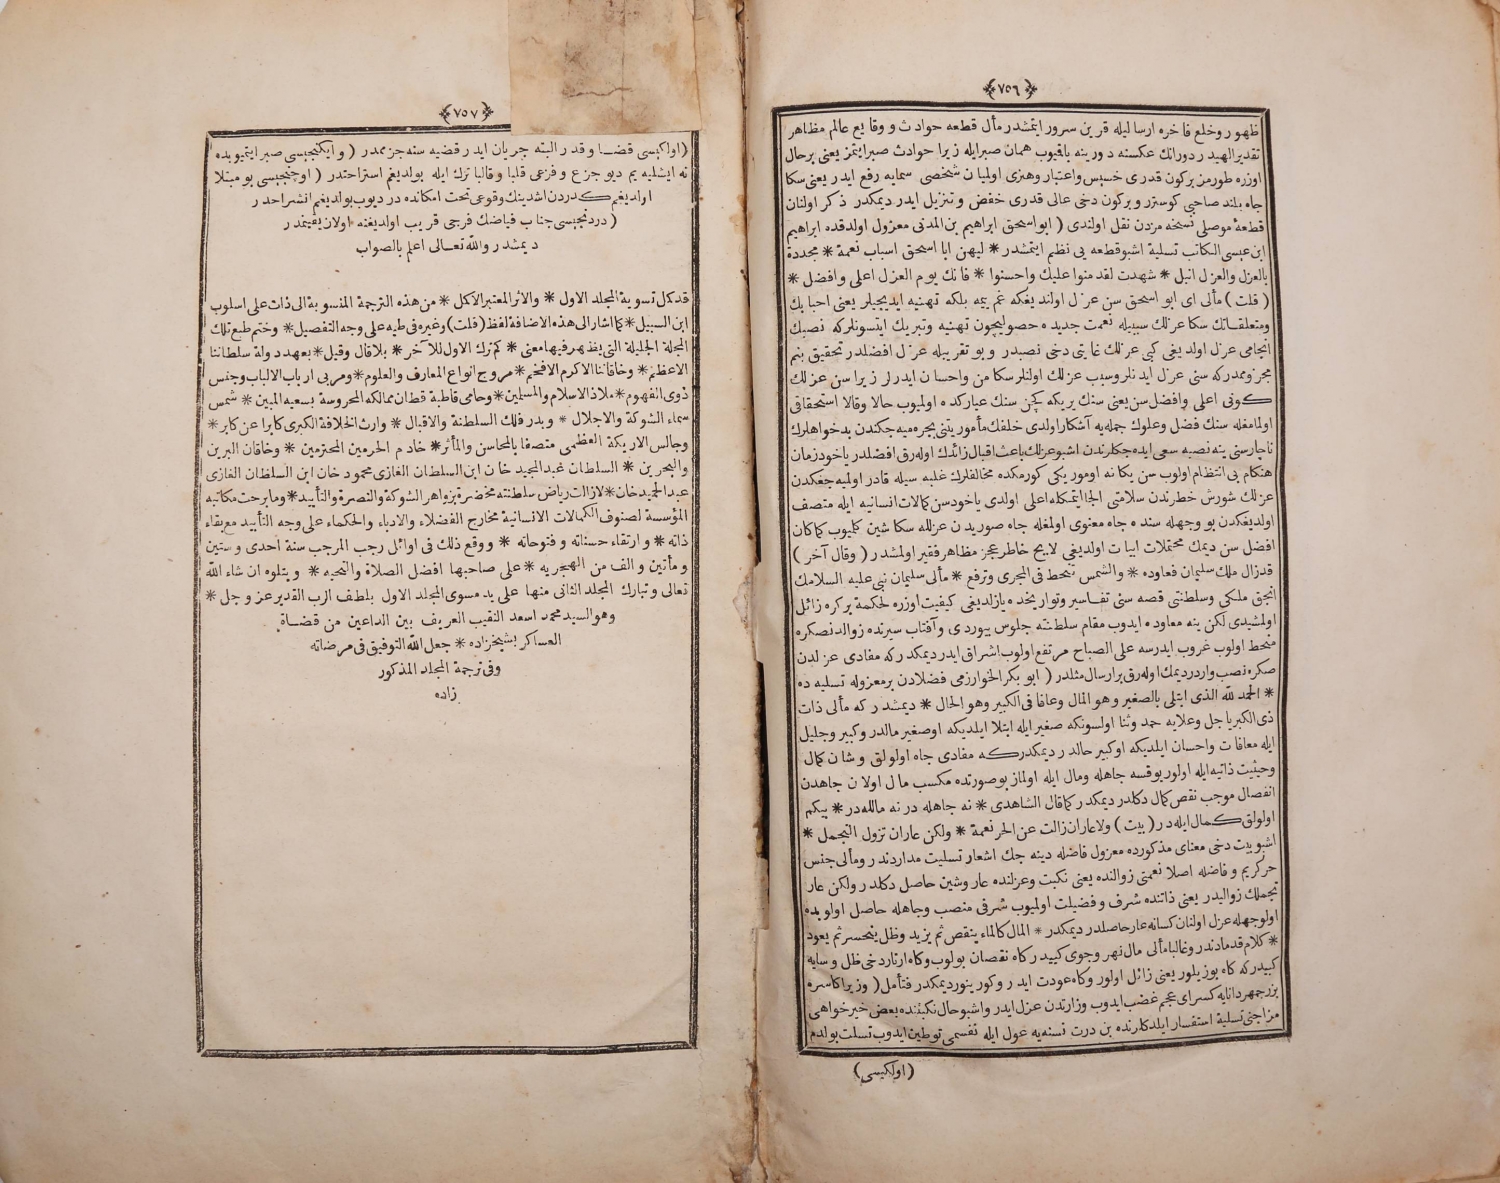 ﴿٧٥٦﴾
ظهور وخلع فاخره ارساليله قرين سرور ايتمشدر مأل قطعه حوادث و وقايع عالم مظاهر
تقدير الهيدر دورانك عكسنه دورينه باقيوب همان صبر ايله زيرا حوادث صبر ايتمز يعنى برحال
اوزره طورمز بركون قدرى خسيس واعتبار وهنرى اولميان شخصى سمايه رفع ايدر يعنى سكا
جاه بلند صاحبى كوستر و بركون دخى عالى قدرى خفض و تنزيل ايدر ديمكدر ذكر اولنان
قطعهٔ موصلى نسخه مزدن نقل اولندى ( ابو اسحق ابراهيم بن المدنى معزول اولدقده ابراهيم
ابن عيسى الكاتب تسلية اشبو قطعه يى نظم ايتمشدر * ليهن ابا اسحق اسباب نعمة * مجددة
بالعزل والعزل انبل * شهدت لقد منوا عليك واحسنوا * فانك يوم العزل اعلى وافضل *
( قلت ) مألى اى ابو اسحق سن عزل اولنديغكه غم ييمه بلكه تهنيه ايديجيلر يعنى احبابك
ومتعلقاتك سكا عزلك سببيله نعمت جديده حصوليچون تهنيه وتبريك ايتسونلر كه نصبك
انجامى عزل اولديغى كبى عزلك غايتى دخى نصبدر و بو تقريبله عزل افضلدر تحقيق بنم
مجزوممدر كه سنى عزل ايدنلر وسبب عزلك اولنلر سكا من واحسان ايدرلر زيرا سن عزلك
كونى اعلى وافضل سن يعنى سنك يريكه كچن سنك عياركده اولميوب حالا وقالا استحقاقى
اولمامغله سنك فضل وعلوك جمله يه آشكار اولدى خلفك مأموريتنى بجره ميه جكندن بدخواهلرك
ناچار سنى ينه نصبه سعى ايده جكلرندن اشبو عزلك باعث اقبال زائدك اوله رق افضلدر ياخود زمان
هنكام بى انتظام اولوب سن يكانه اومور يكى كورمكده مخالفلرك غلبه سيله قادر اولميه جغكدن
عزلك شورش خطرندن سلامتى الجا ايتمكله اعلى اولدى ياخود سن كمالات انسانيه ايله متصف
اولديغكدن بو وجهله سنده جاه معنوى اولمغله جاه صوريدن عزلله سكا شين كليوب كماكان
افضل سن ديمك محتملات ابيات اولديغى لايح خاطر عجز مظاهر فقير اولمشدر ( وقال آخر )
قد زال ملك سليمان فعاوده * والشمس تنحط فى المجرى وترفع * مألى سليمان نبى عليه السلامك
انجق ملكى وسلطنتى قصه سى تفاسير وتواريخده يازلديغى كيفيت اوزره لحكمة بركره زائل
اولمشيدى لكن ينه معاوده ايدوب مقام سلطنته جلوس بيوردى وآفتاب سيرنده زوالدنصكره
منحط اولوب غروب ايدرسه على الصباح مرتفع اولوب اشراق ايدر ديمكدر كه مفادى عزلدن
صكره نصب واردر ديمك اوله رق برارسال مثلدر ( ابو بكر الخوارزمى فضلادن برمعزوله تسليه ده
* الحمد لله الذى ابتلى بالصغير وهو المال وعافا فى الكبير وهو الحال * ديمشدر كه مألى ذات
ذى الكبريا جل وعلايه حمد وثنا اولسونكه صغير ايله ابتلا ايلديكه اوصغير مالدر وكبير وجليل
ايله معافات واحسان ايلديكه اوكبير حالدر ديمكدركه مفادى جاه اولولق و شان كمال
وحيثيت ذاتيه ايله اولور يوقسه جاهله ومال ايله اولماز بوصورتده مكسب مال اولان جاهدن
انفصال موجب نقص كمال دكلدر ديمكدر كما قال الشاهدى * نه جاهله در نه مالله در * بيكم
اولولق كمال ايله در ( بيت ) ولا عار ان زالت عن الحر نعمة * ولكن عارا ان تزول التجمل *
اشبو بيت دخى معناى مذكورده معزول فاضله دينه جك اشعار تسليت مدارندر ومألى جنس
حركريم وفاضله اصلا نعمتى زوالنده يعنى نكبت وعزلنده عار وشين حاصل دكلدر ولكن عار
تجملك زواليدر يعنى ذاتنده شرف و فضيلت اولميوب شرفى منصب وجاهله حاصل اولويده
اولوجهله عزل اولنان كسانه عار حاصلدر ديمكدر * المال كالماء ينقص ثم يزيد وظل ينحسر ثم يعود
* كلام قدمادندر وغالبا مألى مال نهر وجوى كبيدر كاه نقصان بولوب وكاه ارتار دخى ظل وسايه
كبيدر كه كاه بوزيلور يعنى زائل اولور وكاه عودت ايدر وكورينور ديمكدر فتأمل ( وزير اكاسره
بزرجمهر دانايه كسراى عجم غضب ايدوب وزارتدن عزل ايدر واشبو حال نكبتنده بعض خيرخواهى
مزاجنى تسلية استفسار ايلدكلرنده بن درت نسنه يه عول ايله نفسمى توطين ايدوب تسلت بولدم
( اولكيسى )
﴿٧٥٧﴾
( اولكيسى قضا وقدر البته جريان ايدر قضيه سنه جزممدر ( وايكنجيسى صبر ايتميوبده
نه ايشليه يم ديو جزع و فزعى قلبا وقالبا ترك ايله بولديغم استراحتدر ( اوچنجيسى بو مبتلا
اولديغم كدردن اشدينك وقوعى تحت امكانده در ديوب بولديغم انشراحدر
( دردنجيسى جناب فياضك فرجى قريب اولديغنه اولان يقينمدر
ديمشدر والله تعالى اعلم بالصواب
قد كمل تسوية المجلد الاول * والاثر المعتبر الاكمل * من هذه الترجمة المنسوبة الى ذات على اسلوب
ابن السبيل * كما اشار الى هذه الاضافة لفظ ( قلت ) وغيره فى طيه على وجه التفصيل * وختم طبع تلك
المجلة الجليلة التى يظهر فيها معنى * كم ترك الاول للآخر * بلا قال وقيل * بعهد دولة سلطاننا
الاعظم * وخاقاننا الاكرم الافخم * مروج انواع المعارف والعلوم * ومربى ارباب الالباب وجنس
ذوى الفهوم * ملاذ الاسلام والمسلمين * وحامى قاطبة قطان ممالكه المحروسة بسعيه المبين * شمس
سماء الشوكة والاجلال * وبدر فلك السلطنة والاقبال * وارث الخلافة الكبرى كابرا عن كابر *
وجالس الاريكة العظمى متصفا بالمحاسن والمآثر * خادم الحرمين المحترمين * وخاقان البرين
والبحرين * السلطان عبد المجيد خان ابن السلطان الغازى محمود خان ابن السلطان الغازى
عبد الحميد خان * لا زالت رياض سلطنته مخضرة بزواهر الشوكة والنصرة والتأييد * وما برحت مكاتبه
المؤسسة لصنوف الكمالات الانسانية مخارج الفضلاء والادباء والحكماء على وجه التأبيد مع بقاء
ذاته * وارتقاء حسناته وفتوحاته * ووقع ذلك فى اوائل رجب المرجب سنة احدى وستين
ومأتين والف من الهجريه * على صاحبها افضل الصلاة والتحيه * ويتلوه ان شاء الله
تعالى وتبارك المجلد الثانى منها على يد مسوى المجلد الاول بلطف الرب القدير عز وجل *
وهو السيد محمد اسعد النقيب العريف بين الداعين من قضاة
العساكر بشيخزاده * جعل الله التوفيق فى مرضاته
وفى ترجمة المجلد المذكور
زاده